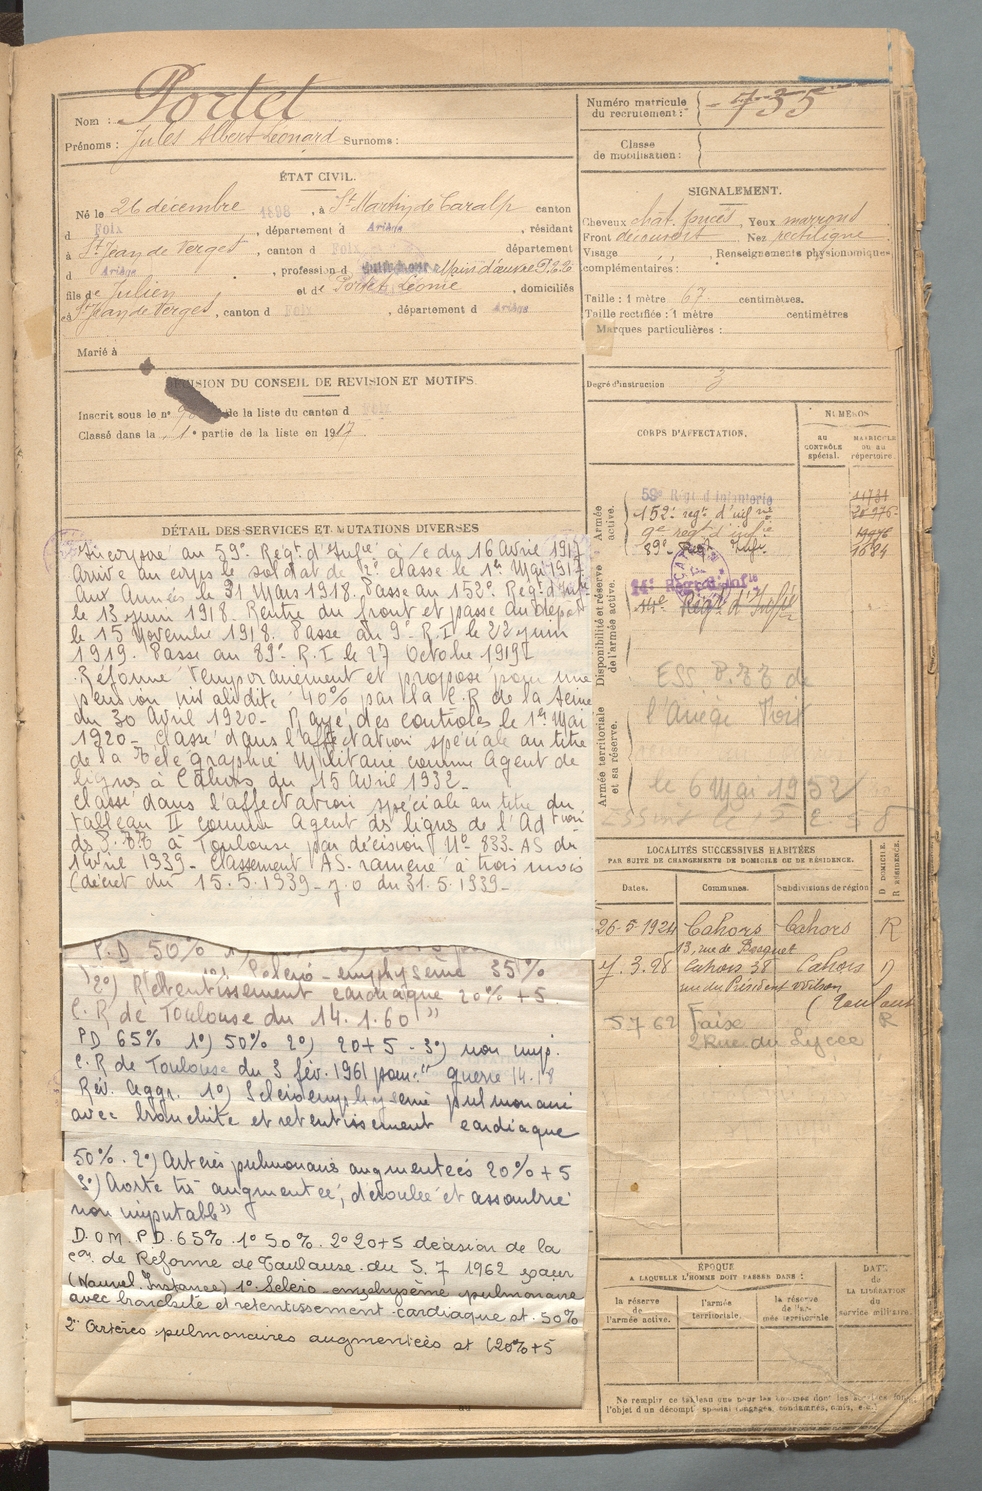 Nom : Portet
Prénoms : Jules Albert Léonard Surnoms :
Numéro matricule du recrutement : 735
Classe de mobilisation :
ÉTAT CIVIL.
Né le 26 décembre 1898, à St Martin de Caralp canton
d Foix, département d Ariège, résidant
à St Jean de Verges, canton d Foix département
d Ariège, profession d Main d'œuvre P.T.T.
fils de Julien et de Portet Léonie, domiciliés
à St Jean de Verges, canton d Foix, département d Ariège
Marié à
SIGNALEMENT.
Cheveux chat. foncés, Yeux marrons
Front découvert Nez rectiligne
Visage , Renseignements physionomiques
complémentaires :
Taille : 1 mètre 67 centimètres.
Taille rectifiée : 1 mètre centimètres
Marques particulières :
Degré d'instruction 3
DÉCISION DU CONSEIL DE REVISION ET MOTIFS
Inscrit sous le n° de la liste du canton d Foix
Classé dans la 1e partie de la liste en 1917
CORPS D'AFFECTATION.
NUMÉROS
AU CONTRÔLE spécial.
MATRICULE ou au répertoire.
Armée active.
59e Régt d'Infanterie 11731
152e regt d'infrie
9e regt d'infie
89e Regt Infie 1684
Disponibilité et réserve de l'armée active.
14e Régt d'Infie
14e Régt d'Infie
Armée territoriale et sa réserve.
ESS P.T.T de
l'Ariège
le 6 Mai 1952
DÉTAIL DES SERVICES ET MUTATIONS DIVERSES
Incorporé au 59e Régt d'Infie à /c du 16 Avril 1917
Arrivé au corps le soldat de 2e classe le 1er Mai 1917
Aux Armées le 31 Mars 1918. Passé au 152e Régt d'Inf
le 13 juin 1918. Rentré du front et passé au Dépôt
le 15 Novembre 1918. Passé au 9e R.I le 22 juin
1919. Passé au 89e R.I le 27 Octobre 1919
Réformé Temporairement et proposé pour une
pension invalidité 40% par la C.R de la Seine
du 30 Avril 1920 - Rayé des contrôles le 1er Mai
1920 - Classé dans l'affectation spéciale au titre
de la Télégraphie Militaire comme Agent de
lignes à Cahors du 15 Avril 1932 -
Classé dans l'affectation spéciale au titre du
tableau II comme Agent des lignes de l'Adtion
des P.TT à Toulouse par décision N° 833. AS du
1 Avril 1939 - Classement AS. ramené à trois mois
(décret du 15.5.1939 - J.O du 31.5.1939 -
P.D 50%
Scléro-emphysème 35%
2°) Retentissement cardiaque 20% + 5
C.R de Toulouse du 14.1.60 "
PD 65% 1°) 50% 2°) 20+5 - 3°) non imp.
C.R de Toulouse du 3 fév. 1961 pour : " guerre 14.18
Rév. Aggr. 1°) Scléroemphysème pulmonaire
avec bronchite et retentissement cardiaque
50%. 2°) Artères pulmonaires augmentées 20% + 5
3°) Aorte très augmentée, déroulée et assombrie
non imputable "
D.O.M. P.D. 65%. 1° 50%. 2° 20+5 décision de la
Con de Réforme de Toulouse du 5.7 1962 pour
(Nouvel. Instance) 1° Scléro emphysème pulmonaire
avec bronchite et retentissement cardiaque st. 50%
2° Artères pulmonaires augmentées st (20%+5
LOCALITÉS SUCCESSIVES HABITÉES
PAR SUITE DE CHANGEMENTS DE DOMICILE OU DE RÉSIDENCE.
Dates. Communes. Subdivisions de région D. DOMICILE. R. RÉSIDENCE.
26-5-1924 Cahors Cahors R
13, rue de Bosquet
7.3.28 Cahors 38 Cahors D
rue du Président Wilson
5 7 62 Foix (Toulouse R
2 Rue du Lycée
ÉPOQUE
A LAQUELLE L'HOMME DOIT PASSER DANS :
DATE de LA LIBÉRATION du service militaire.
la réserve de l'armée active.
l'armée territoriale.
la réserve de l'armée territoriale
Ne remplir ce tableau que pour les hommes dont les services font
l'objet d'un décompte spécial (engagés, condamnés, omis, etc.)